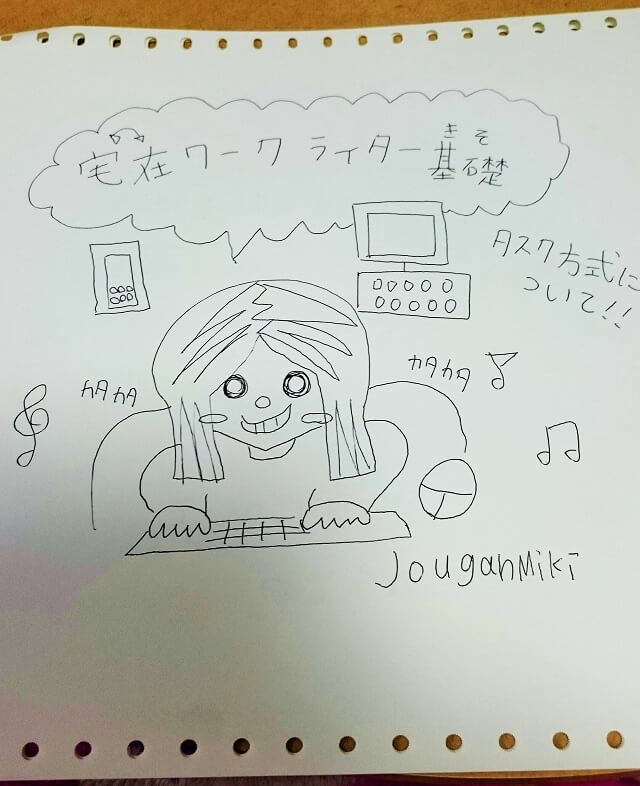 宅在ワークライター基礎
きそ
タスク方式に
ついて!!
カタカタ
カタカタ
JouganMiki